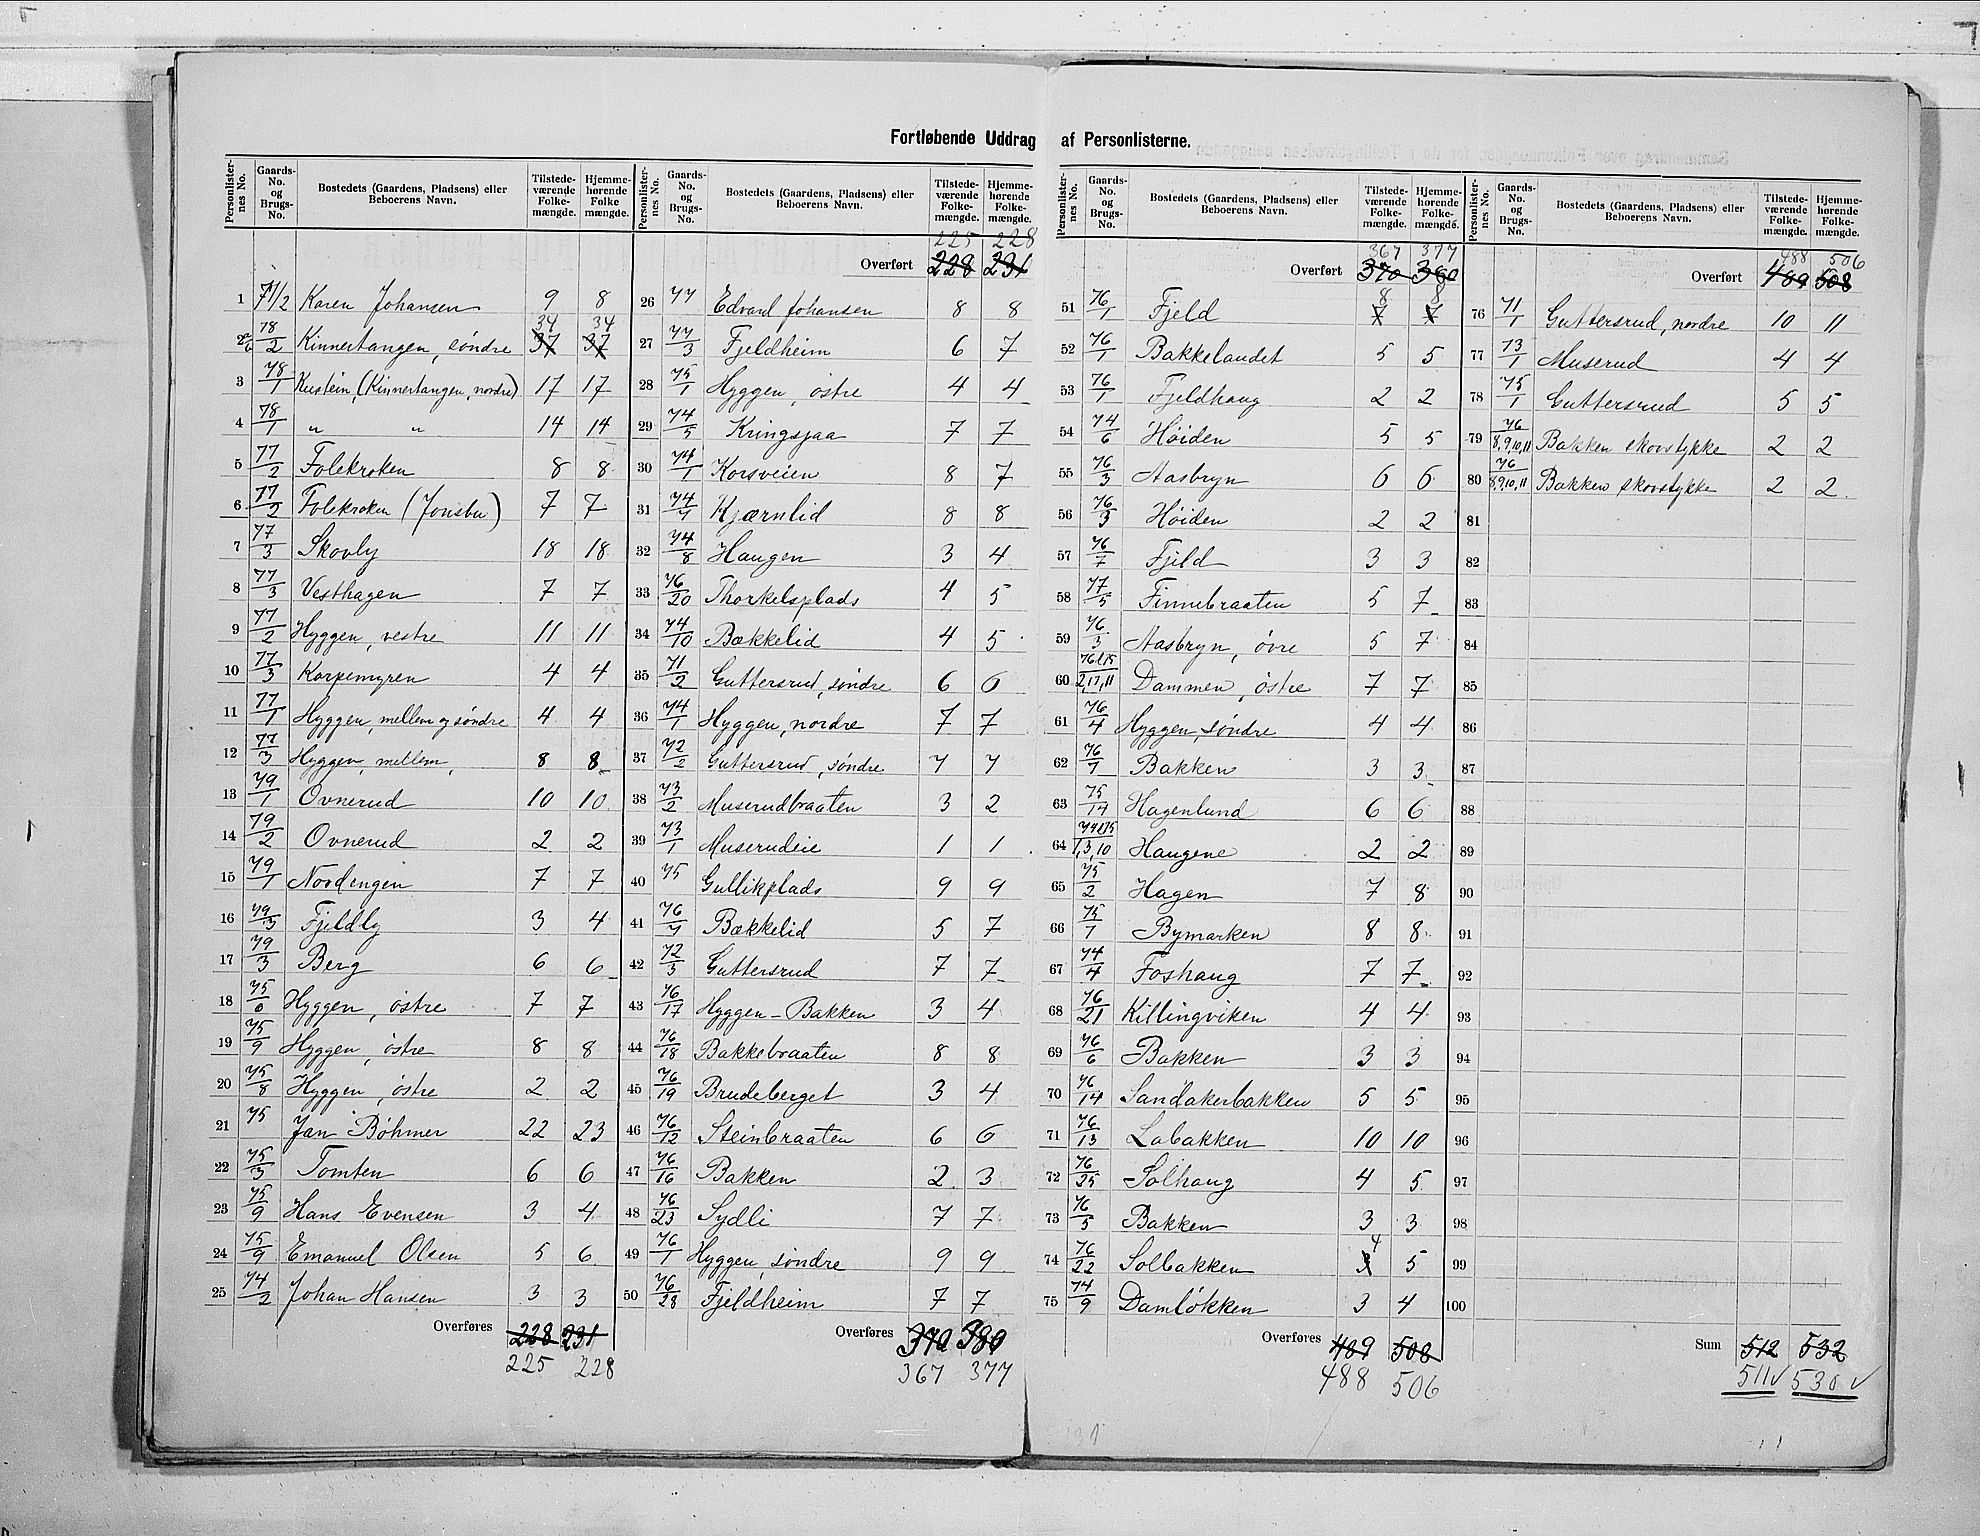 Fortløbende Uddrag af Personlisterne.
Personlister- nes No. | Gaards- No. og Brugs- No. | Bostedets (Gaardens, Pladsens) eller Beboerens Navn. | Tilstede- værende Folke- mængde. | Hjemme- hørende Folke mængde.
1 | 71/2 | Karen Johansen | 9 | 8
2 | 78/2 | Kinnertangen, søndre | 37 34 | 37 34
3 | 78/1 | Kustein, (Kinnertangen, nordre) | 17 | 17
4 | 78/1 | " " | 14 | 14
5 | 77/2 | Folekroken | 8 | 8
6 | 77/2 | Folekroken (Jonsbu) | 7 | 7
7 | 77/3 | Skovly | 18 | 18
8 | 77/3 | Vesthagen | 7 | 7
9 | 77/2 | Hyggen, vestre | 11 | 11
10 | 77/3 | Korpemyren | 4 | 4
11 | 77/1 | Hyggen, mellem og søndre | 4 | 4
12 | 77/3 | Hyggen, mellem, | 8 | 8
13 | 79/1 | Ovnerud | 10 | 10
14 | 79/2 | Ovnerud | 2 | 2
15 | 79/1 | Nordengen | 7 | 7
16 | 79/3 | Fjeldly | 3 | 4
17 | 79/3 | Berg | 6 | 6
18 | 75/6 | Hyggen, östre | 7 | 7
19 | 75/9 | Hyggen, östre | 8 | 8
20 | 75/8 | Hyggen, östre | 2 | 2
21 | 75 | Jan Böhmer | 22 | 23
22 | 75/3 | Tomten | 6 | 6
23 | 75/9 | Hans Evensen | 3 | 4
24 | 75/9 | Emanuel Olsen | 5 | 6
25 | 74/2 | Johan Hansen | 3 | 3
Overføres 228 231
225 228
Personlister- nes No. | Gaards- No. og Brugs- No. | Bostedets (Gaardens, Pladsens) eller Beboerens Navn. | Tilstede- værende Folke- mængde. | Hjemme- hørende Folke- mængde.
225 228
Overført 228 231
26 | 77 | Edvard Johansen | 8 | 8
27 | 77/3 | Fjeldheim | 6 | 7
28 | 75/1 | Hyggen, östre | 4 | 4
29 | 74/5 | Kringsjaa | 7 | 7
30 | 74/1 | Korsveien | 8 | 7
31 | 74/7 | Kjærnlid | 8 | 8
32 | 74/8 | Haugen | 3 | 4
33 | 76/20 | Thorkelsplads | 4 | 5
34 | 74/10 | Bækkelid | 4 | 5
35 | 71/2 | Guttersrud, söndre | 6 | 6
36 | 74/1 | Hyggen, nordre | 7 | 7
37 | 72/2 | Guttersrud, söndre | 7 | 7
38 | 73/2 | Muserudbraaten | 3 | 2
39 | 73/1 | Muserudeie | 1 | 1
40 | 75 | Gullikplads | 9 | 9
41 | 76/7 | Bækkelid | 5 | 7
42 | 72/3 | Guttersrud | 7 | 7
43 | 76/17 | Hyggen-Bakken | 3 | 4
44 | 76/18 | Bakkebraaten | 8 | 8
45 | 76/19 | Brudeberget | 3 | 4
46 | 76/12 | Steinbraaten | 6 | 6
47 | 76/16 | Bakken | 2 | 3
48 | 76/23 | Sydli | 7 | 7
49 | 76/1 | Hyggen, söndre | 9 | 9
50 | 76/28 | Fjeldheim | 7 | 7
Overføres 370 380
367 377
Personlister- nes No. | Gaards- No. og Brugs- No. | Bostedets (Gaardens, Pladsens) eller Beboerens Navn. | Tilstede- værende Folke- mængde. | Hjemme- hørende Folke- mængde.
367 377
Overført 370 380
51 | 76/1 | Fjeld | 7 8 | 7 8
52 | 76/1 | Bakkelandet | 5 | 5
53 | 76/1 | Fjeldhaug | 2 | 2
54 | 74/6 | Höiden | 5 | 5
55 | 76/3 | Aasbryn | 6 | 6
56 | 76/3 | Höiden | 2 | 2
57 | 76/7 | Fjeld | 3 | 3
58 | 77/5 | Finnebraaten | 5 | 7
59 | 76/3 | Aasbryn, övre | 5 | 7
60 | 76&75/2,17,11 | Dammen, östre | 7 | 7
61 | 76/4 | Hyggen, söndre | 4 | 4
62 | 76/7 | Bakken | 3 | 3
63 | 75/17 | Hagenlund | 6 | 6
64 | 74&75/1,3,10 | Haugene | 2 | 2
65 | 75/2 | Hagen | 7 | 8
66 | 75/7 | Bymarken | 8 | 8
67 | 74/4 | Foshaug | 7 | 7
68 | 76/21 | Killingviken | 4 | 4
69 | 76/6 | Bakken | 3 | 3
70 | 76/14 | Sandakerbakken | 5 | 5
71 | 76/13 | Labakken | 10 | 10
72 | 76/25 | Solhaug | 4 | 5
73 | 76/5 | Bakken | 3 | 3
74 | 76/22 | Solbakken | 3 4 | 5
75 | 74/9 | Damlökken | 3 | 4
Overføres 489 508
488 506
Personlister- nes No. | Gaards- No. og Brugs- No. | Bostedets (Gaardens, Pladsens) eller Beboerens Navn. | Tilstede- værende Folke- mængde. | Hjemme- hørende Folke- mængde.
488 506
Overført 489 508
76 | 71/1 | Guttersrud, nordre | 10 | 11
77 | 73/1 | Muserud | 4 | 4
78 | 75/1 | Guttersrud | 5 | 5
79 | 76/8,9,10,11 | Bakken skovstykke | 2 | 2
80 | 76/8,9,10,11 | Bakken skovstykke | 2 | 2
81
82
83
84
85
86
87
88
89
90
91
92
93
94
95
96
97
98
99
100
Sum 512 532
511 530